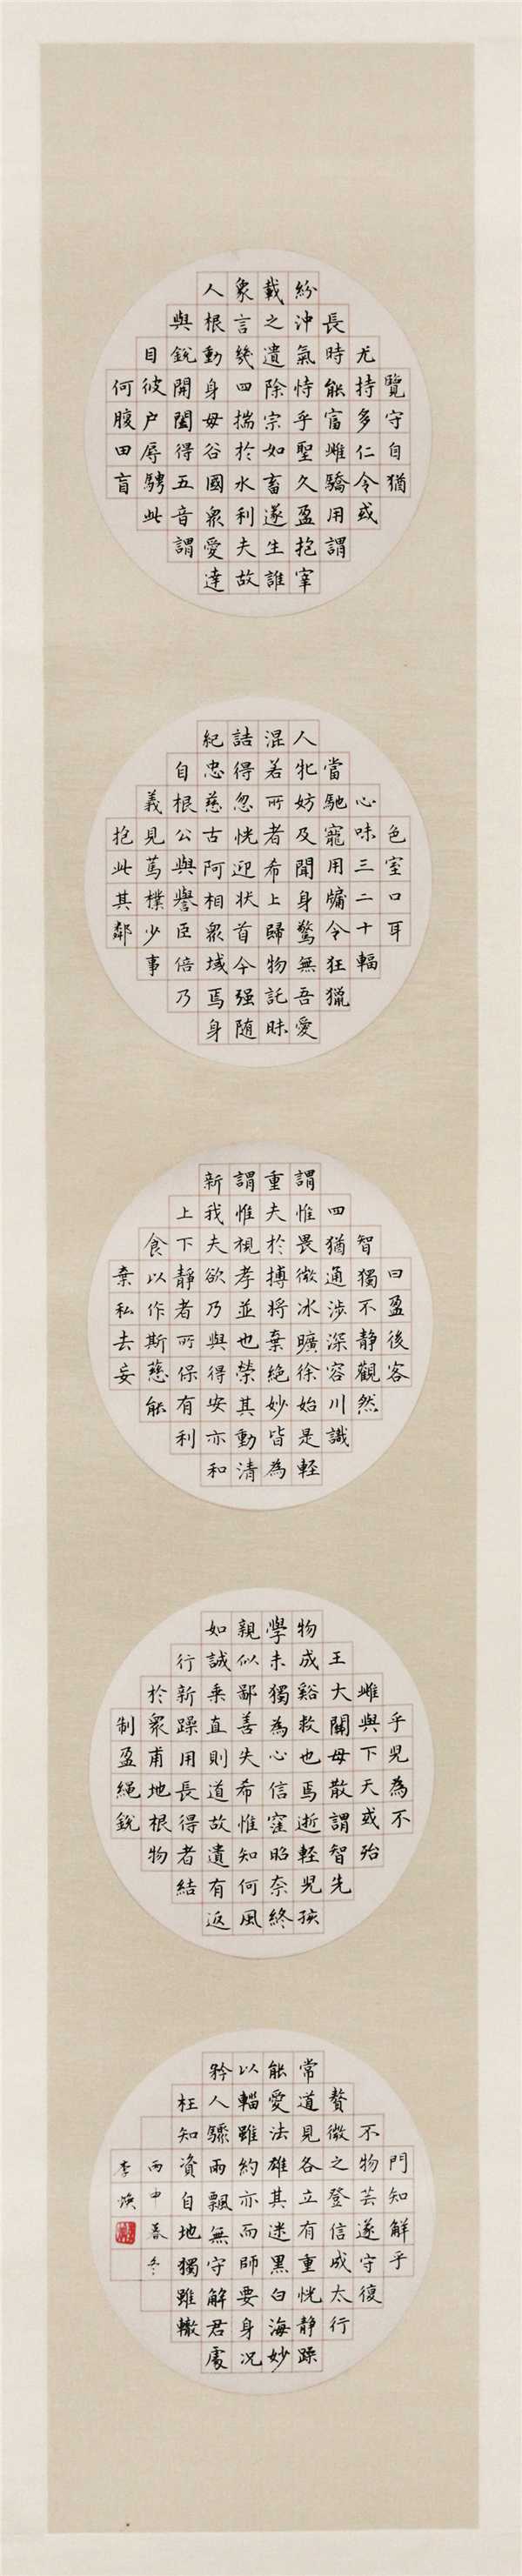 覽守自猶
尤持多仁令或
長時能富雌驕用謂
紛沖氣恃乎聖久盈抱宰
載之遺除宗如畜遂生誰
象言幾四揣於水利夫故
人根動身毋谷國眾愛達
與銳開闔得五音謂
目彼户辱騁此
何腹田盲
色室口耳
心味三二十輻
當馳寵用牖令狂獵
人牝妨及聞身驚無吾愛
混若所者希上歸物託昧
詰得忽恍迎状首今强随
紀忠慈古阿相眾域焉身
自根公與譽臣倍乃
義見萬樸少事
抱此其鄰
曰盈後客
智獨不静觀然
四猶通涉深容川識
謂惟畏微冰曠徐始是輕
重夫於搏將棄絕妙皆為
謂惟視孝並也榮其動清
新我夫欲乃與得安亦和
上下靜者所保有利
食以作斯慈能
棄私去妄
乎兒為不
雌與下天或殆
王大關母散謂智先
物成谿救也焉逝輕兒孩
學未獨為心信窪昭奈終
親似鄙善失希惟知何風
如誠乘直則道故遺有返
行新躁用長得者結
於眾甫地根物
制盈繩銳
門知解乎
不物芸遂守復
贅微之登信成太行
常道見各立有重恍静躁
能愛法雄其迷黑白海妙
以輜雖約亦而師要身况
矜人驟雨飄無守解君處
枉知資自地獨雖轍
丙申春冬
李焕